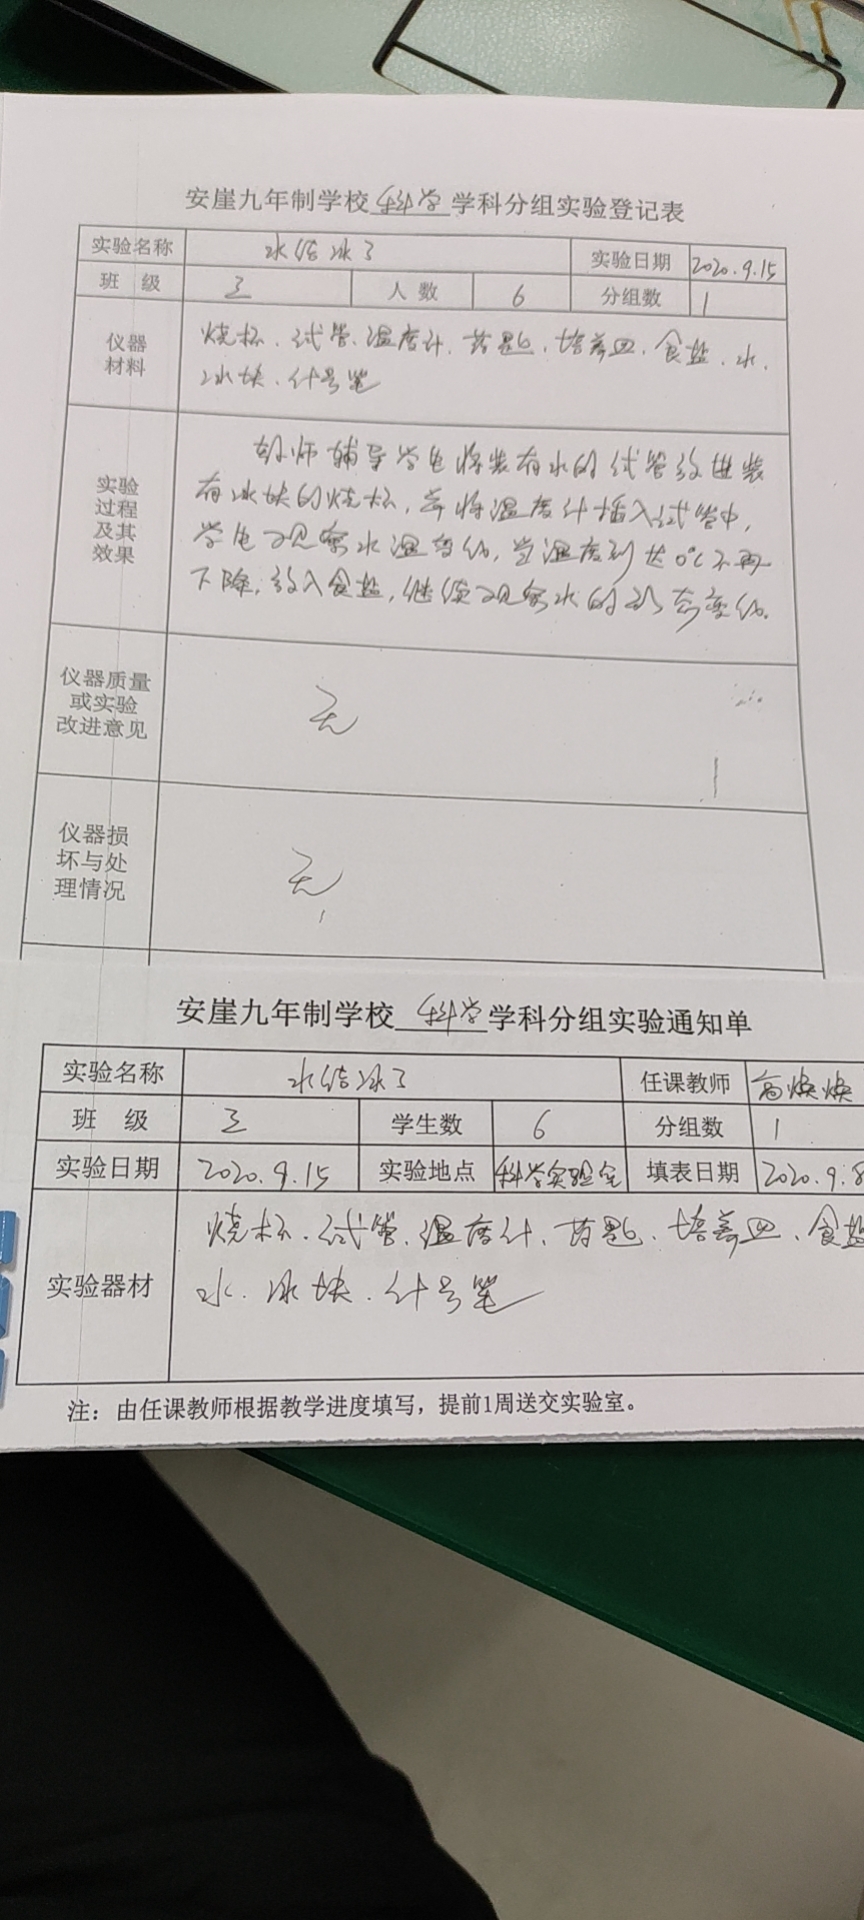 安崖九年制学校 科学 学科分组实验登记表
实验名称 水结冰了 实验日期 2020.9.15
班 级 三 人 数 6 分组数 1
仪器材料 烧杯、试管、温度计、药匙、培养皿、食盐、水、
冰块、什号笔
实验过程及其效果 教师辅导学生将装有水的试管放进装
有冰块的烧杯,并将温度计插入试管中,
学生观察水温变化,当温度到达0℃不再
下降,放入食盐,继续观察水的形态变化。
仪器质量或实验改进意见 无
仪器损坏与处理情况 无
安崖九年制学校 科学 学科分组实验通知单
实验名称 水结冰了 任课教师 高焕焕
班 级 三 学生数 6 分组数 1
实验日期 2020.9.15 实验地点 科学实验室 填表日期 2020.9.8
实验器材 烧杯、试管、温度计、药匙、培养皿、食盐
水、冰块、什号笔
注：由任课教师根据教学进度填写，提前1周送交实验室。